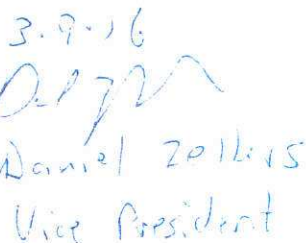 3.9.16
Daniel Zollars
Vice President